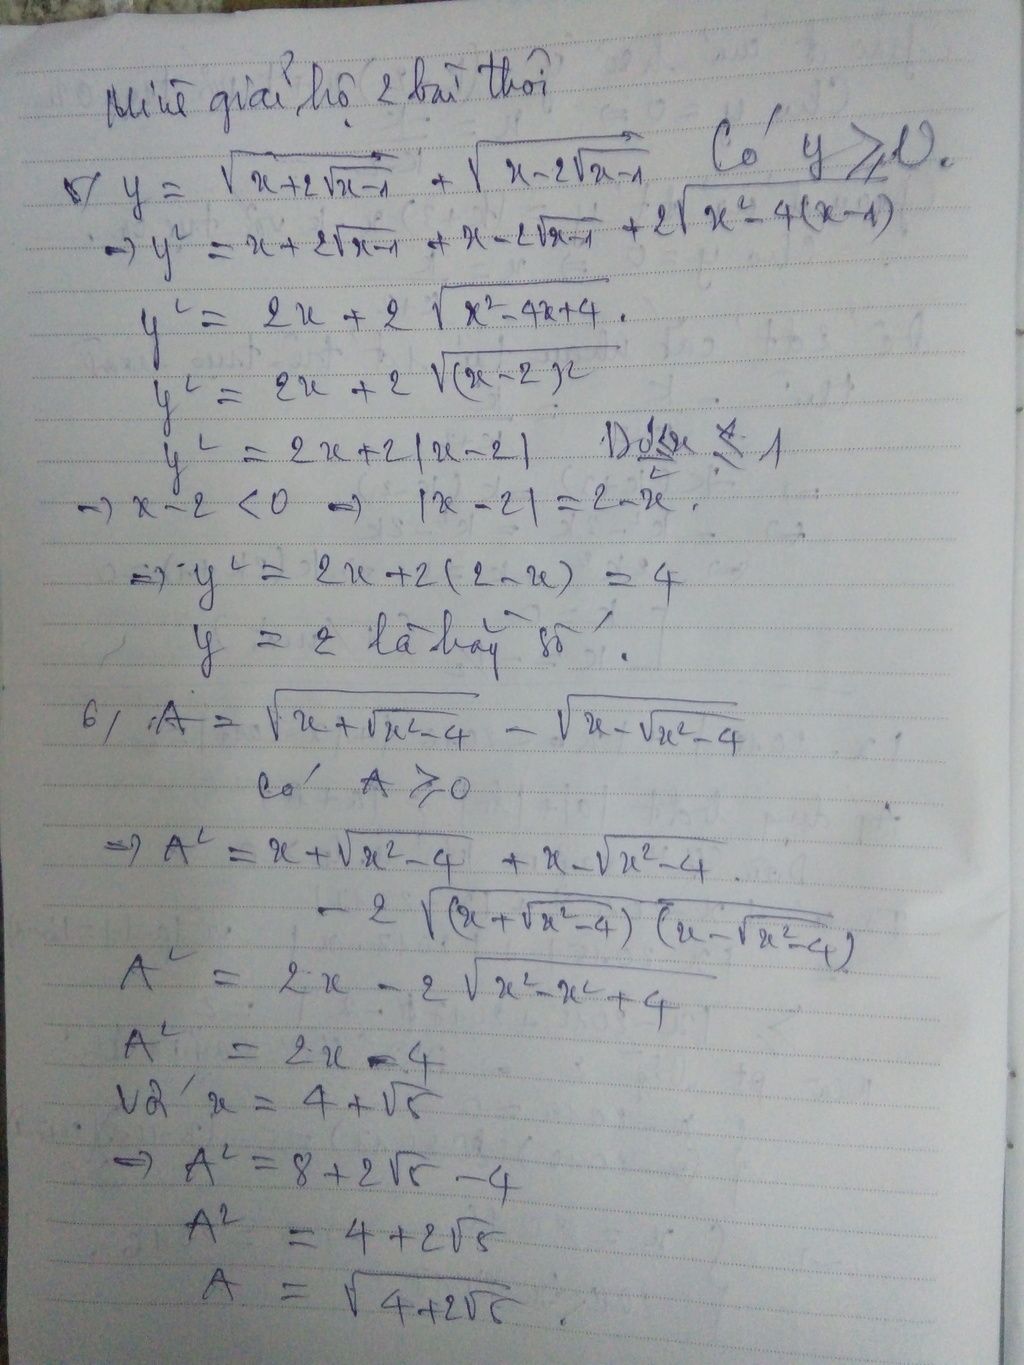 Mình giải hộ 2 bài thôi
5/ y = √(x+2√(x-1)) + √(x-2√(x-1)) Có y ⩾ 0.
⇒ y² = x + 2√(x-1) + x - 2√(x-1) + 2√(x² - 4(x-1))
y² = 2x + 2√(x² - 4x + 4).
y² = 2x + 2√((x-2)²)
y² = 2x + 2|x-2| 1
⇒ x - 2 < 0 ⇒ |x - 2| = 2 - x.
⇒ y² = 2x + 2(2 - x) = 4
y = 2 là hằng số.
6/ A = √(x + √(x²-4)) - √(x - √(x²-4))
Có A ⩾ 0
⇒ A² = x + √(x²-4) + x - √(x²-4)
- 2√((x + √(x²-4)) (x - √(x²-4)))
A² = 2x - 2√(x² - x² + 4)
A² = 2x - 4
Với x = 4 + √5
⇒ A² = 8 + 2√5 - 4
A² = 4 + 2√5
A = √(4 + 2√5).